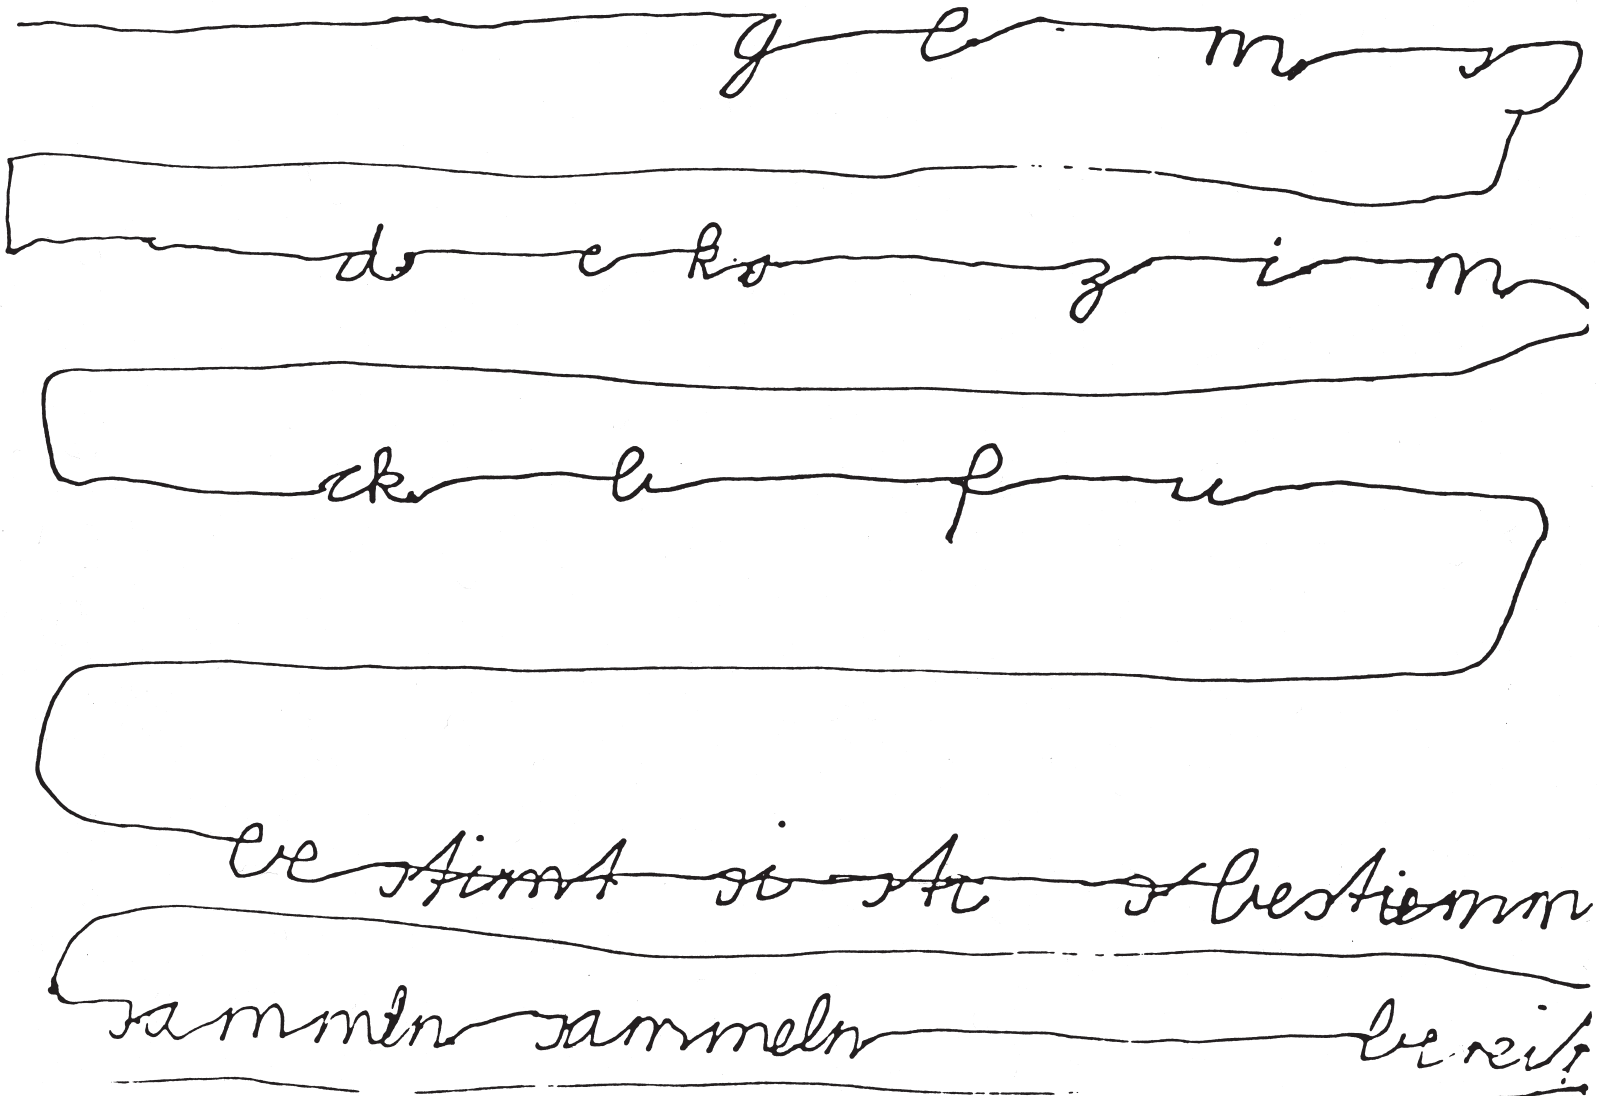 g e m s
d e ko z i m
ck b f u
bestimt si sti s bestiemm
sammeln sammeln bereit